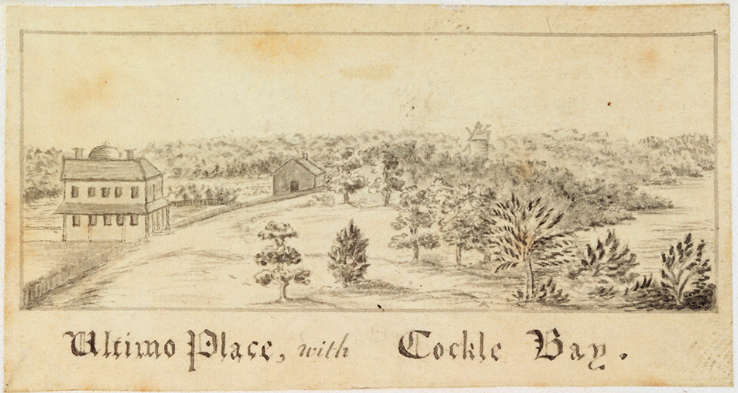 Ultimo Place, with Cockle Bay.